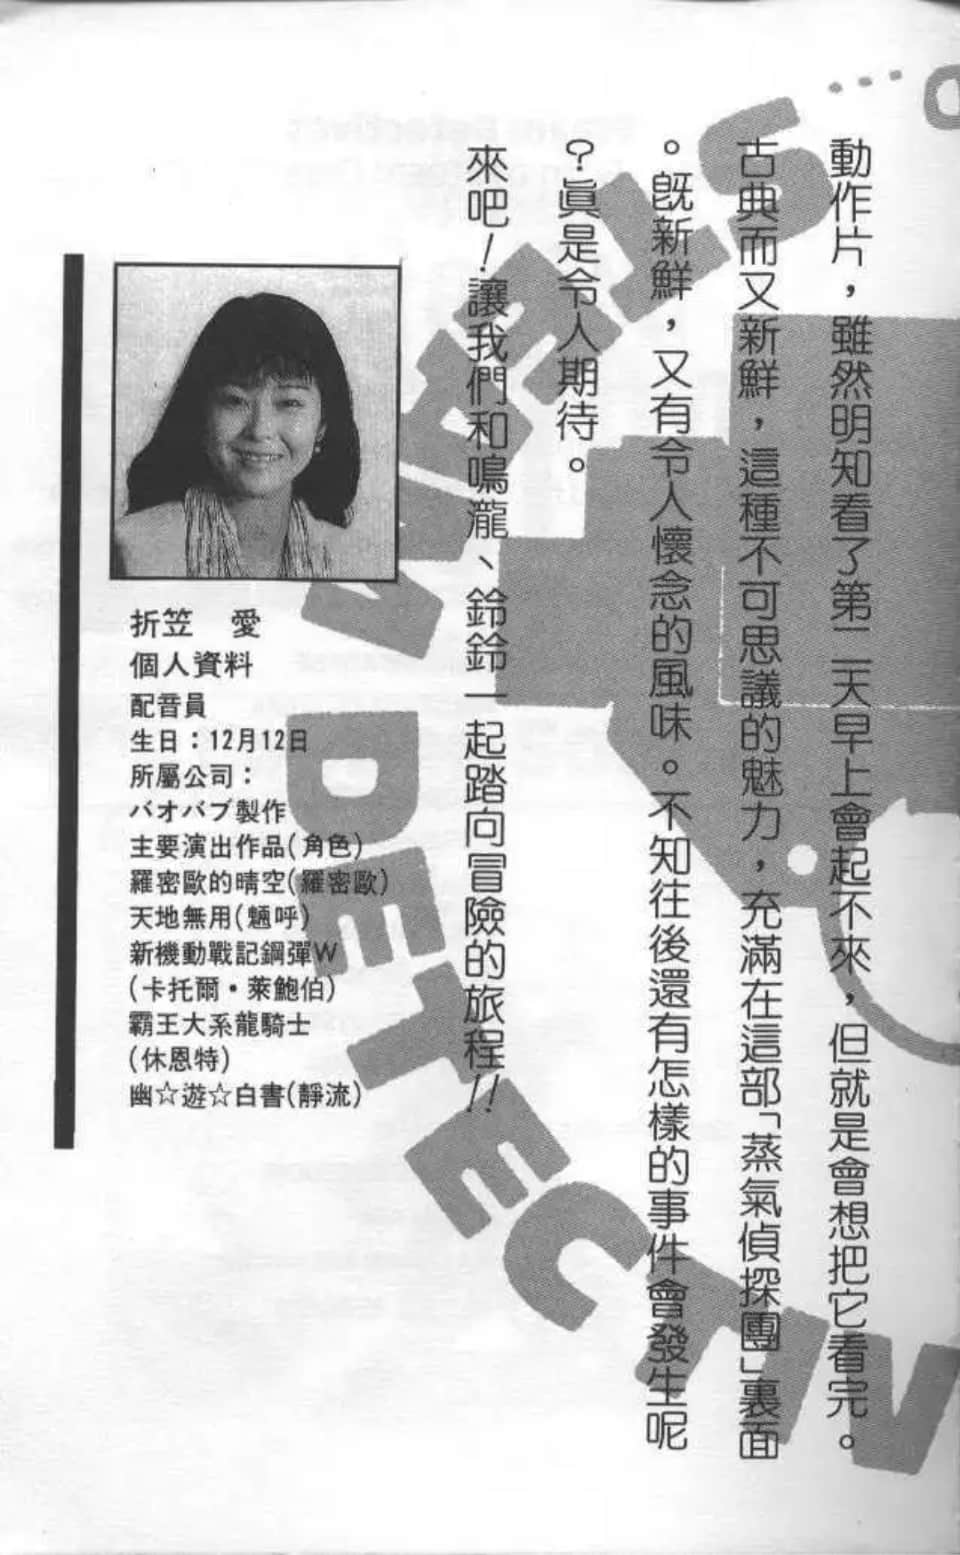 動作片，雖然明知看了第二天早上會起不來，但就是會想把它看完。
古典而又新鮮，這種不可思議的魅力，充滿在這部「蒸氣偵探團」裏面
。既新鮮，又有令人懷念的風味。不知往後還有怎樣的事件會發生呢
？眞是令人期待。
來吧！讓我們和鳴瀧、鈴鈴一起踏向冒險的旅程！！
折笠　愛
個人資料
配音員
生日：12月12日
所屬公司：
バオバブ製作
主要演出作品(角色)
羅密歐的晴空(羅密歐)
天地無用(魎呼)
新機動戰記鋼彈W
(卡托爾・萊鮑伯)
霸王大系龍騎士
(休恩特)
幽☆遊☆白書(靜流)